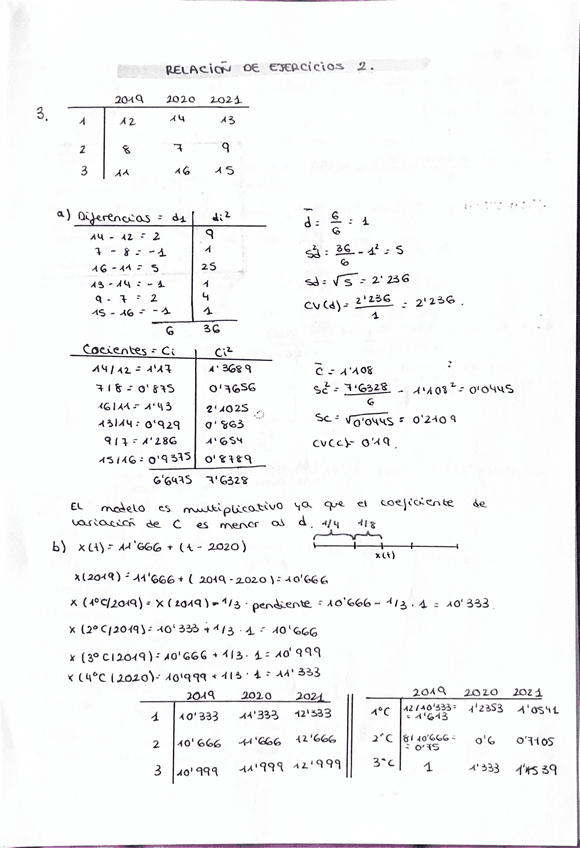 RELACIÓN DE EJERCICIOS 2.
3.
2019 2020 2021
1 12 14 13
2 8 7 9
3 11 16 15
a) Diferencias = d1 di²
14 - 12 = 2 9
7 - 8 = -1 1
16 - 11 = 5 25
13 - 14 = -1 1
9 - 7 = 2 4
15 - 16 = -1 1
6 36
d̄ = 6/6 = 1
Sd² = 36/6 - 1² = 5
Sd = √5 = 2'236
CV(d) = 2'236/1 = 2'236.
Cocientes = Ci Ci²
14/12 = 1'17 1'3689
7/8 = 0'875 0'7656
16/11 = 1'43 2'1025
13/14 = 0'929 0'863
9/7 = 1'286 1'654
15/16 = 0'9375 0'8789
6'6475 7'6328
c̄ = 1'108
Sc² = 7'6328/6 - 1'108² = 0'0445
Sc = √0'0445 = 0'2109
CV(c) = 0'19.
El modelo es multiplicativo ya que el coeficiente de
variación de C es menor al d.
1/4 1/8
x(t)
b) x(t) = 11'666 + (t - 2020)
x(2019) = 11'666 + (2019 - 2020) = 10'666
x(1ºC/2019) = x(2019) - 1/3 · pendiente = 10'666 - 1/3 · 1 = 10'333
x(2ºC/2019) = 10'333 + 1/3 · 1 = 10'666
x(3ºC/2019) = 10'666 + 1/3 · 1 = 10'999
x(4ºC/2020) = 10'999 + 1/3 · 1 = 11'333
2019 2020 2021
1 10'333 11'333 12'333
2 10'666 11'666 12'666
3 10'999 11'999 12'999
2019 2020 2021
1ºC 12/10'333 = = 1'613 1'2353 1'0541
2ºC 8/10'666 = = 0'75 0'6 0'7105
3ºC 1 1'333 39